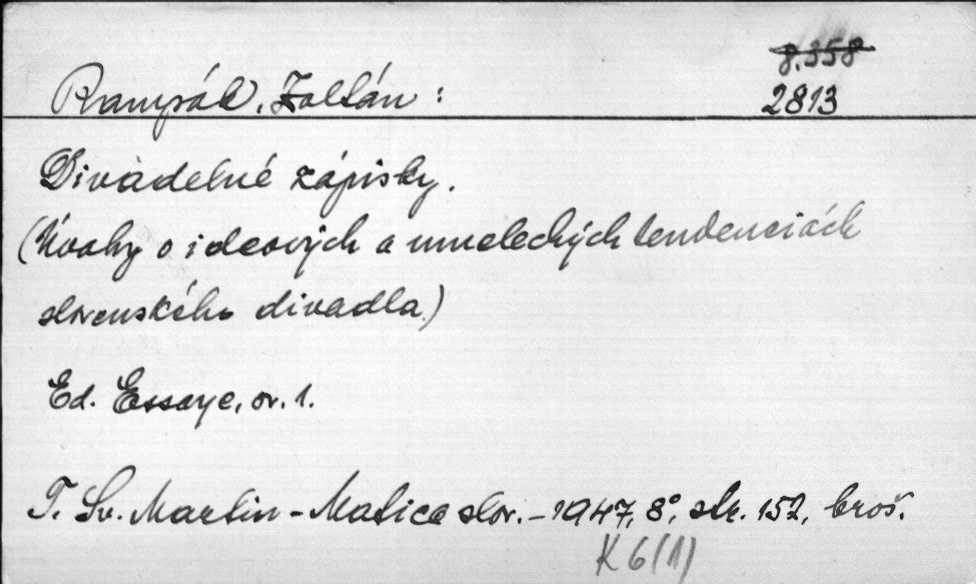 8.358
Rampák, Zoltán:
2813
Divadelné zápisky.
(Úvahy o ideových a umeleckých tendenciách
slovenského divadla)
Ed. Essaye, sv. 1.
T. Sv. Martin - Matica slov. - 1947, 8°, str. 152, brož.
K 6(1)